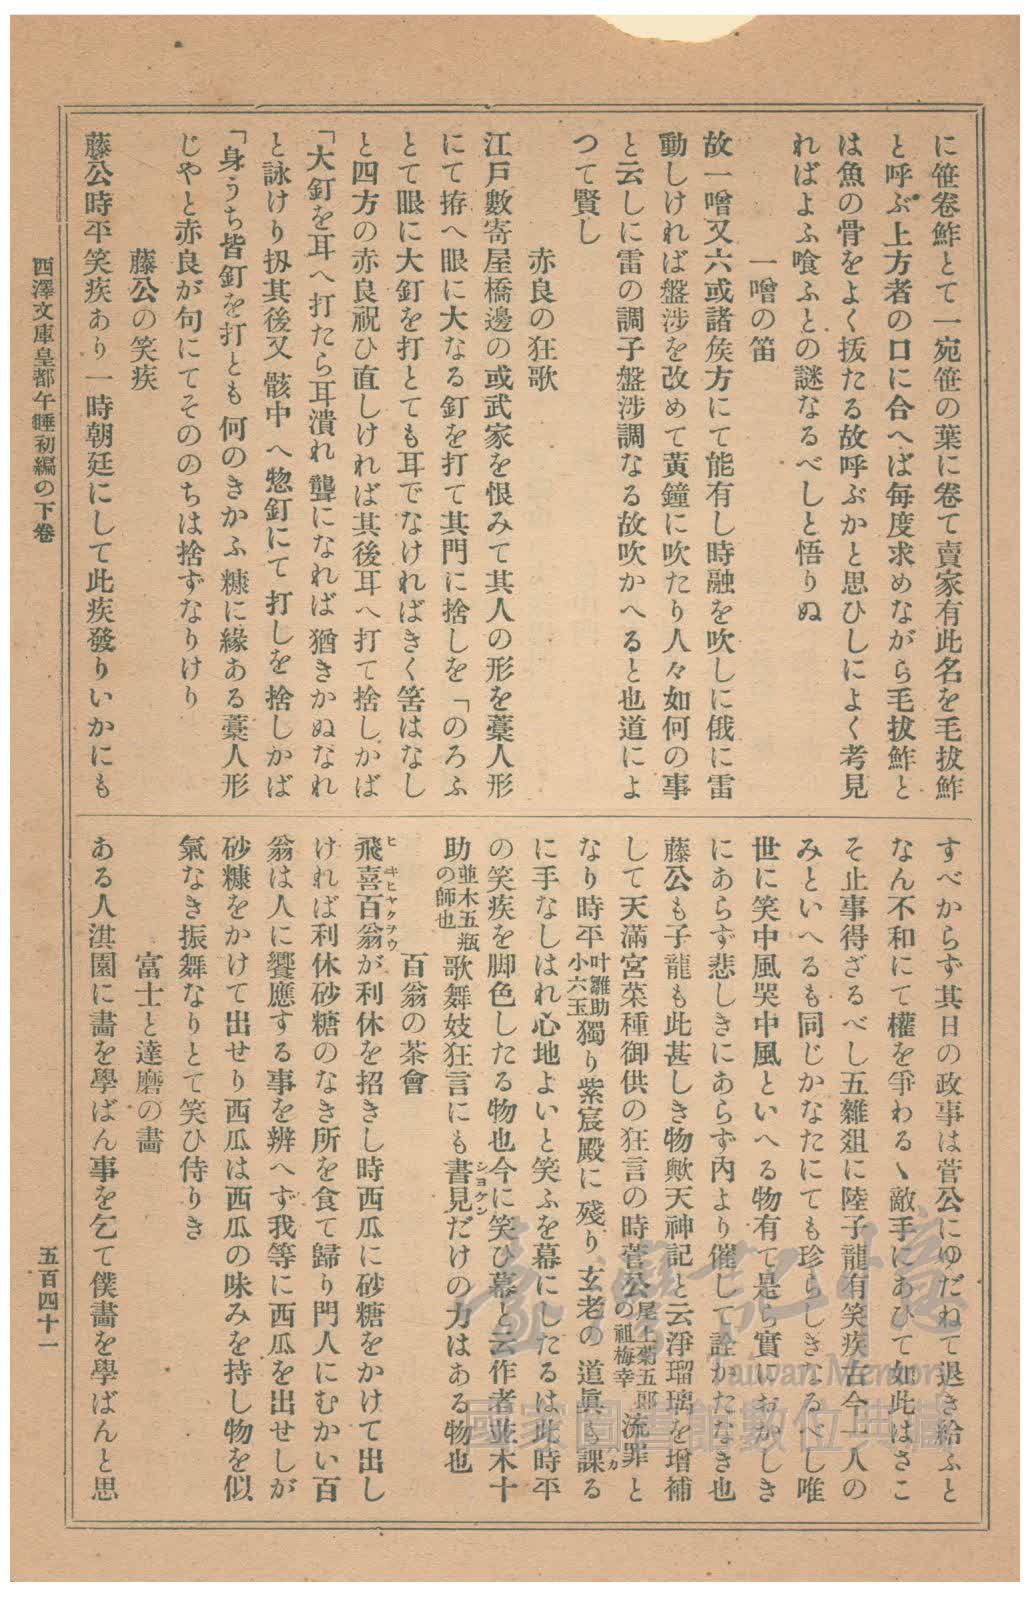 に笹卷鮓とて一宛笹の葉に卷て賣家有此名を毛拔鮓
と呼ぶ上方者の口に合へば每度求めながら毛拔鮓と
は魚の骨をよく拔たる故呼ぶかと思ひしによく考見
ればよふ喰ふとの謎なるべしと悟りぬ
一噌の笛
故一噌又六或諸矦方にて能有し時融を吹しに俄に雷
動しければ盤涉を改めて黃鐘に吹たり人々如何の事
と云しに雷の調子盤涉調なる故吹かへると也道によ
つて賢し
赤良の狂歌
江戶數寄屋橋邊の或武家を恨みて其人の形を藁人形
にて拵へ眼に大なる釘を打て其門に捨しを「のろふ
とて眼に大釘を打とても耳でなければきく筈はなし
と四方の赤良祝ひ直しければ其後耳へ打て捨しかば
「大釘を耳へ打たら耳潰れ聾になれば猶きかぬなれ
と詠けり扨其後又骸中へ惣釘にて打しを捨しかば
「身うち皆釘を打とも何のきかふ糠に緣ある藁人形
じやと赤良が句にてそののちは捨ずなりけり
藤公の笑疾
藤公時平笑疾あり一時朝廷にして此疾發りいかにも
すべからず其日の政事は菅公にゆだねて退き給ふと
なん不和にて權を爭わるゝ敵手にあひて如此はさこ
そ止事得ざるべし五雜爼に陸子龍有笑疾古今一人の
みといへるも同じかなたにても珍らしきなるべし唯
世に笑中風哭中風といへる物有て是ら實におかしき
にあらず悲しきにあらず內より催して詮かたなき也
藤公も子龍も此甚しき物歟天神記と云淨瑠璃を增補
して天滿宮菜種御供の狂言の時菅公尾上菊五郎の祖梅幸流罪と
なり時平叶雛助小六玉獨り紫宸殿に殘り玄老の道眞も課カる
に手なしはれ心地よいと笑ふを幕にしたるは此時平
の笑疾を脚色したる物也今に笑ひ幕と云作者並木十
助並木五瓶の師也歌舞妓狂言にも書見シヨケンだけの力はある物也
百翁の茶會
飛喜百翁ヒキヒヤクヲウが利休を招きし時西瓜に砂糖をかけて出し
ければ利休砂糖のなき所を食て歸り門人にむかい百
翁は人に饗應する事を辨へず我等に西瓜を出せしが
砂糠をかけて出せり西瓜は西瓜の味みを持し物を似
氣なき振舞なりとて笑ひ侍りき
富士と達磨の畵
ある人淇園に畵を學ばん事を乞て僕畵を學ばんと思
西澤文庫皇都午睡初編の下卷
五百四十一
臺灣記憶
Taiwan Memory
國家圖書館數位典藏